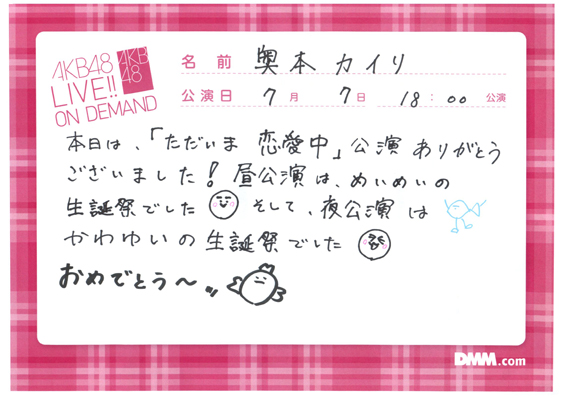 AKB48
LIVE!!
ON DEMAND
AKB
48
名前 奥本カイリ
公演日 7月 7日 18:00 公演
本日は、「ただいま 恋愛中」公演 ありがとう
ございました! 昼公演は、めいめいの
生誕祭でした そして、夜公演は
かわゆいの生誕祭でした
おめでとう〜!!
DMM.com